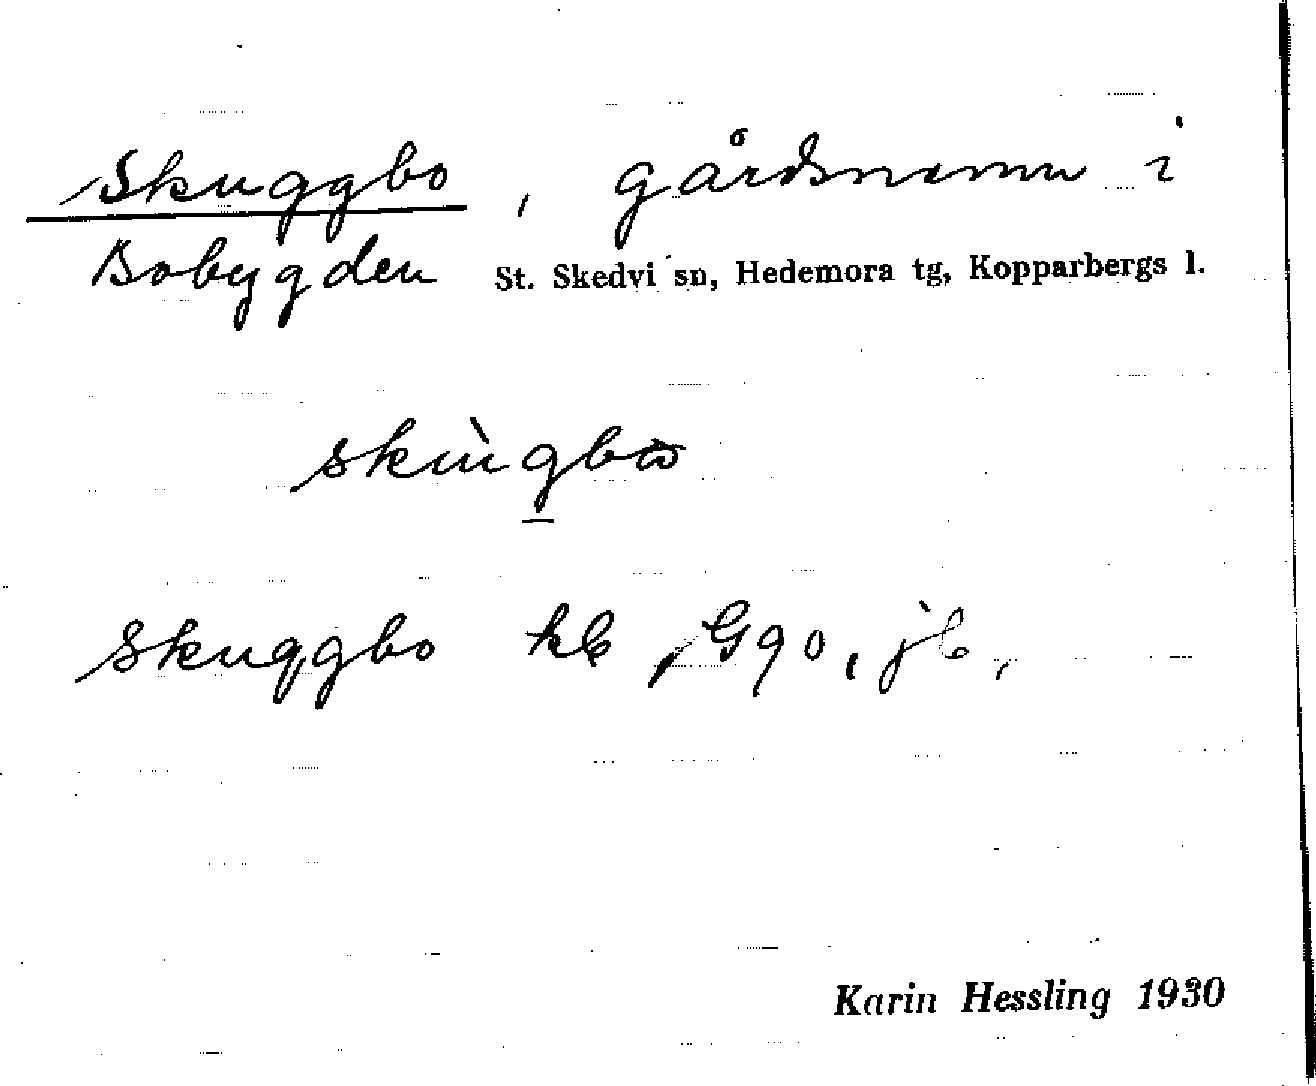 Skuggbo, gårdsnamn i
Bobygden St. Skedvi sn, Hedemora tg, Kopparbergs l.
skùgbω
Skuggbo kb, G90, jb,
Karin Hessling 1930